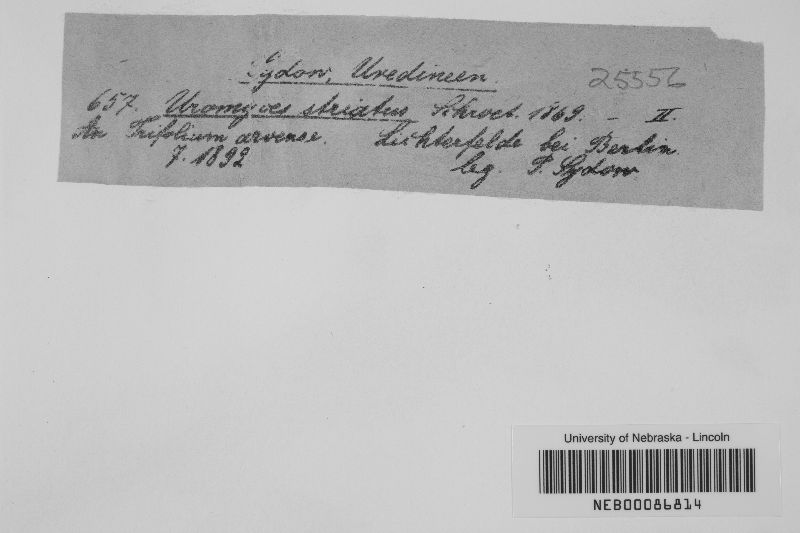 Sydow, Uredineen.
25556
657. Uromyces striatus Schroet. 1869. – II.
An Trifolium arvense. Lichterfelde bei Berlin
7. 1892 leg. P. Sydow
University of Nebraska - Lincoln
NEB00086814